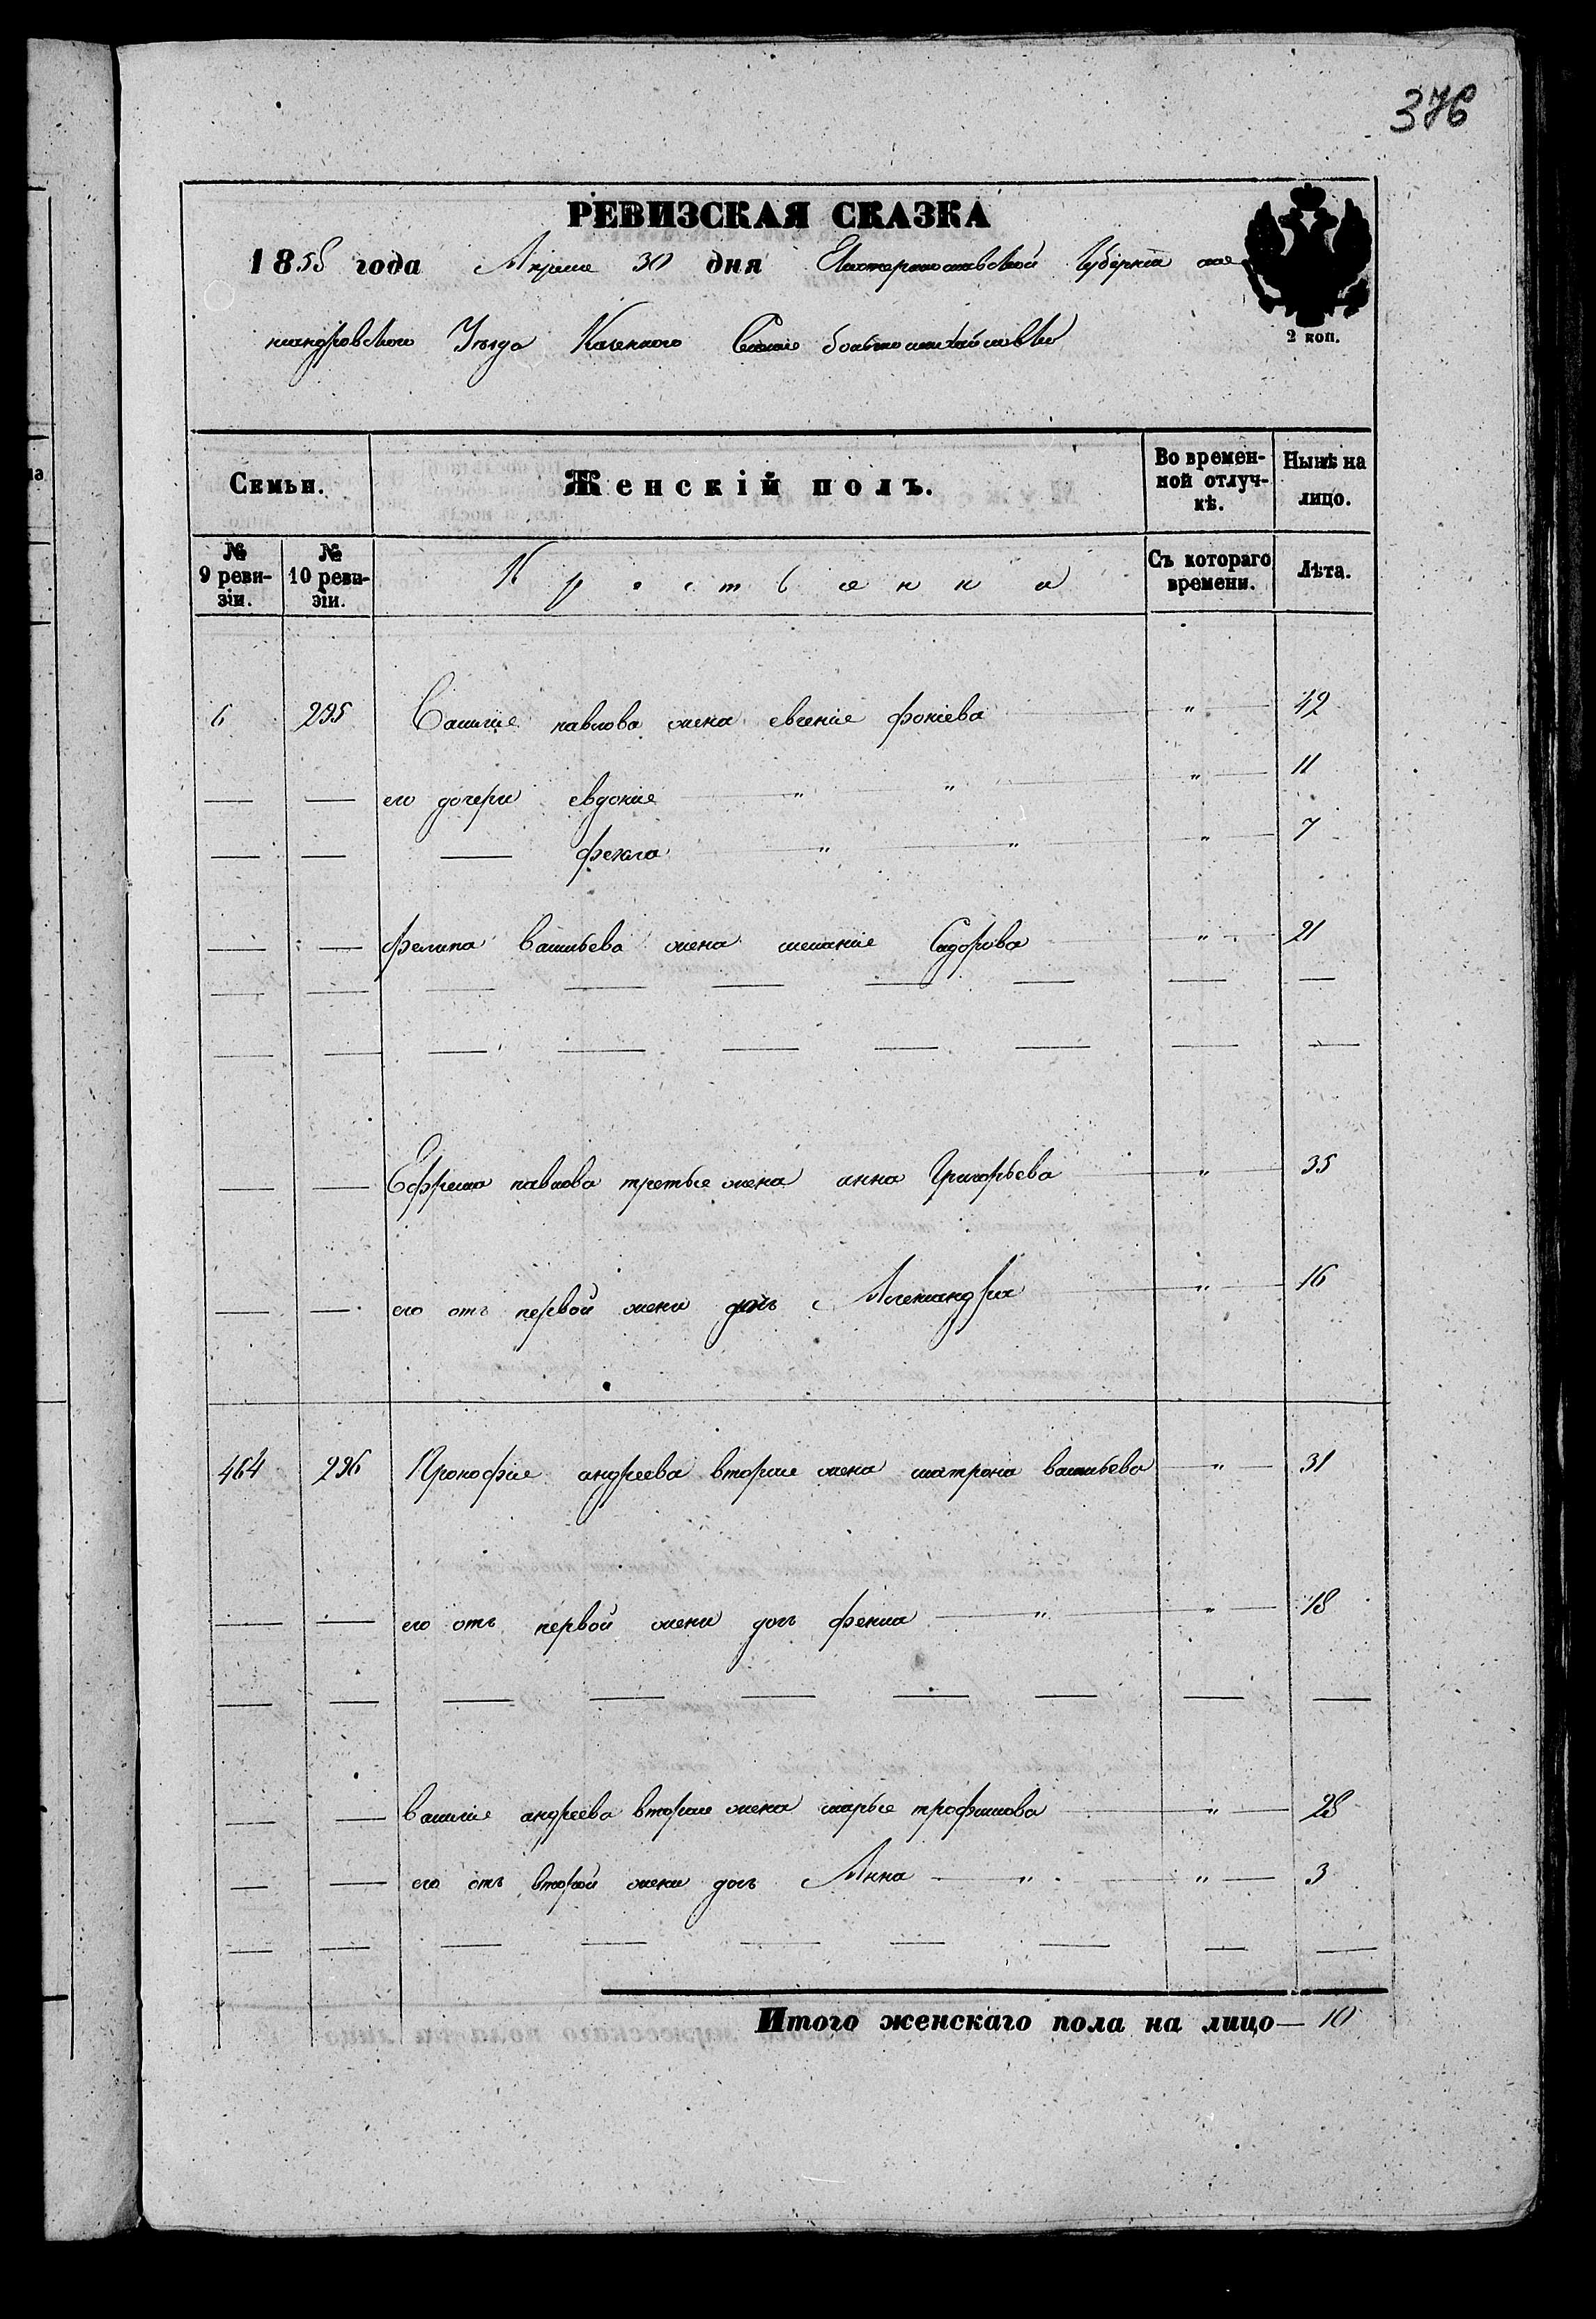 376
РЕВИЗСКАЯ СКАЗКА
1858 года Апреле 30 дня Екатеринославской Губернии але
ксандровского Уезда Казенного Селение большемихайловки
2 коп.
Семьи. Женскій полъ. Во времен-ной отлуч-кѣ. Нынѣ на лицо.
№ 9 реви-зіи. № 10 реви-зіи. Съ котораго времени. Лѣта.
6 295 Василие павлова жена евгение фокиева " 42
— — его дочери евдокие " " " 11
— — — фекла " " " 7
— — филипа васильева жена мелание Сидорова " 21
— — — — — — — — —
— — — — — — — — —
— — Ефрема павлова третье жена анна Григорьева " 35
— — его отъ первой жени дочь Александра " 16
464 296 Прокофие андреева вторая жена матрона васильева " 31
— — его отъ первой жени дочь фенна " " 18
— — — — — — — — —
— — василие андреева вторая жена марье трофимова " 28
— — его отъ второй жени дочь Анна " " 3
— — — — — — — — —
Итого женскаго пола на лицо — 10